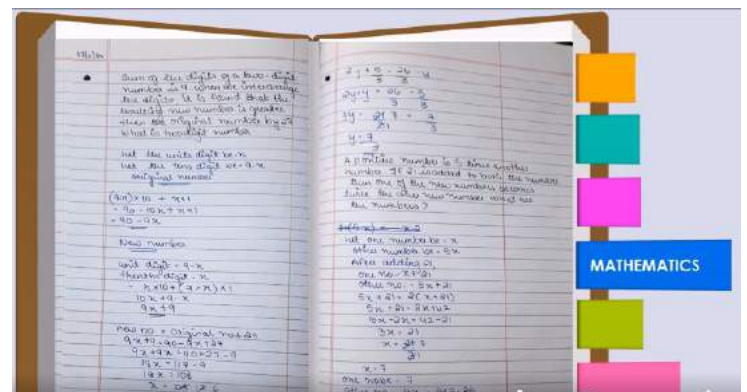 Sum of the digits of a two-digit
number is 9. when we interchange
the digits, it is found that the
resulting new number is greater
than the original number by 27
What is two digit number
Let the units digit be x
Let the tens digit be 9-x
original number
(9-x)×10 + x×1
= 90 - 10x + x×1
= 90 - 9x
New number
unit digit = 9-x
digit = x
= x×10 + (9-x)×1
10x + 9 - x
9x+9
new no = original no + 27
9x+9 = 90-9x+27
9x+9x = 90+27-9
18x = 117-9
18x = 108
A positive number is 5 times another
number. If 21 is added to both the numbers
then one of the new numbers becomes
twice the other new number what are
the numbers?
Let one number be = x
other number be = 5x
After adding 21,
one no. = x+21
other no. = 5x+21
5x+21 = 2(x+21)
5x+21 = 2x+42
5x-2x = 42-21
3x = 21
x = 7
MATHEMATICS